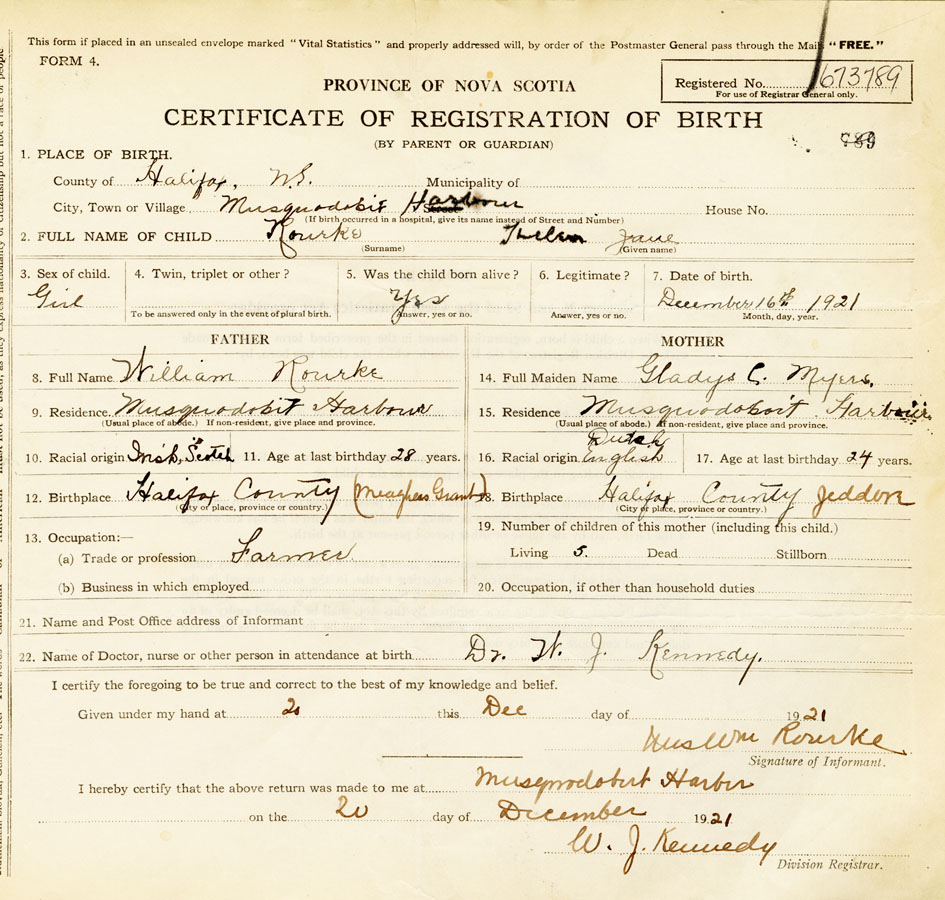 This form if placed in an unsealed envelope marked "Vital Statistics" and properly addressed will, by order of the Postmaster General pass through the Mails "FREE."
FORM 4.
PROVINCE OF NOVA SCOTIA
Registered No. 673789
For use of Registrar General only.
CERTIFICATE OF REGISTRATION OF BIRTH
(BY PARENT OR GUARDIAN)
789
1. PLACE OF BIRTH.
County of Halifax, N.S. Municipality of
City, Town or Village, Musquodobit Harbour House No.
(If birth occurred in a hospital, give its name instead of Street and Number)
2. FULL NAME OF CHILD Rourke Helen Jane
(Surname) (Given name)
3. Sex of child. 4. Twin, triplet or other? 5. Was the child born alive? 6. Legitimate? 7. Date of birth.
Girl Yes December 16th 1921
To be answered only in the event of plural birth. Answer, yes or no. Answer, yes or no. Month, day, year.
FATHER MOTHER
8. Full Name William Rourke 14. Full Maiden Name Gladys C. Myers,
9. Residence. Musquodobit Harbour 15. Residence Musquodoboit Harbour
(Usual place of abode.) If non-resident, give place and province. (Usual place of abode.) If non-resident, give place and province.
Dutch
10. Racial origin Irish, Scotch 11. Age at last birthday 28 years. 16. Racial origin English 17. Age at last birthday 24 years.
12. Birthplace Halifax County (Meaghers Grant) 18. Birthplace Halifax County Jeddore
(City or place, province or country.) (City or place, province or country.)
13. Occupation:— 19. Number of children of this mother (including this child.)
(a) Trade or profession Farmer Living 5. Dead Stillborn
(b) Business in which employed 20. Occupation, if other than household duties
21. Name and Post Office address of Informant
22. Name of Doctor, nurse or other person in attendance at birth Dr. W. J. Kennedy.
I certify the foregoing to be true and correct to the best of my knowledge and belief.
Given under my hand at 20 this Dec day of 1921
Wm Rourke
Signature of Informant.
I hereby certify that the above return was made to me at Musquodoboit Harbor
on the 20 day of December 1921
W. J. Kennedy
Division Registrar.